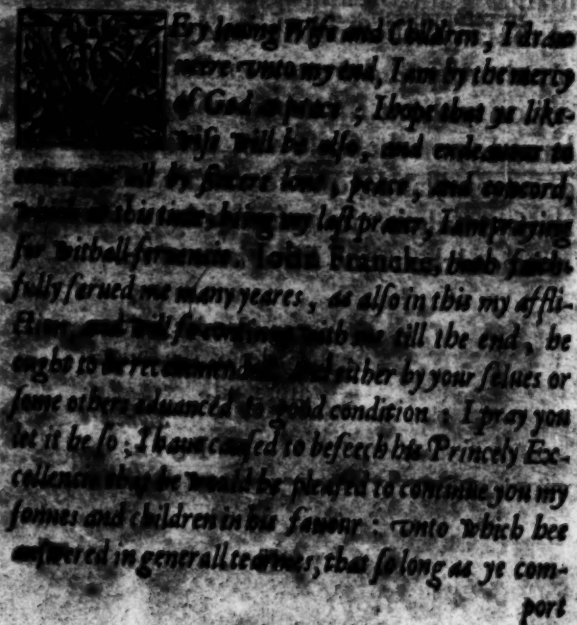 VEry loving Wife and Children, I draw
neere vnto my end, I am by the mercy
of God at peace ; I hope that ye like-
wise will be also, and endeavour to
all by sincere love, peace, and concord,
this time being my last praier, I am praying
for withall fervencie. Iohn Francke, hath faith-
fully serued me many yeares, as also in this my affli-
ction, and will so continue with me till the end, he
ought to be recommended, and either by your selues or
some others aduanced to good condition : I pray you
let it be so ; I haue caused to beseech his Princely Ex-
cellencie that he would be pleased to continue you my
sonnes and children in his fauour : vnto which hee
answered in generall tearmes, that so long as ye com-
port